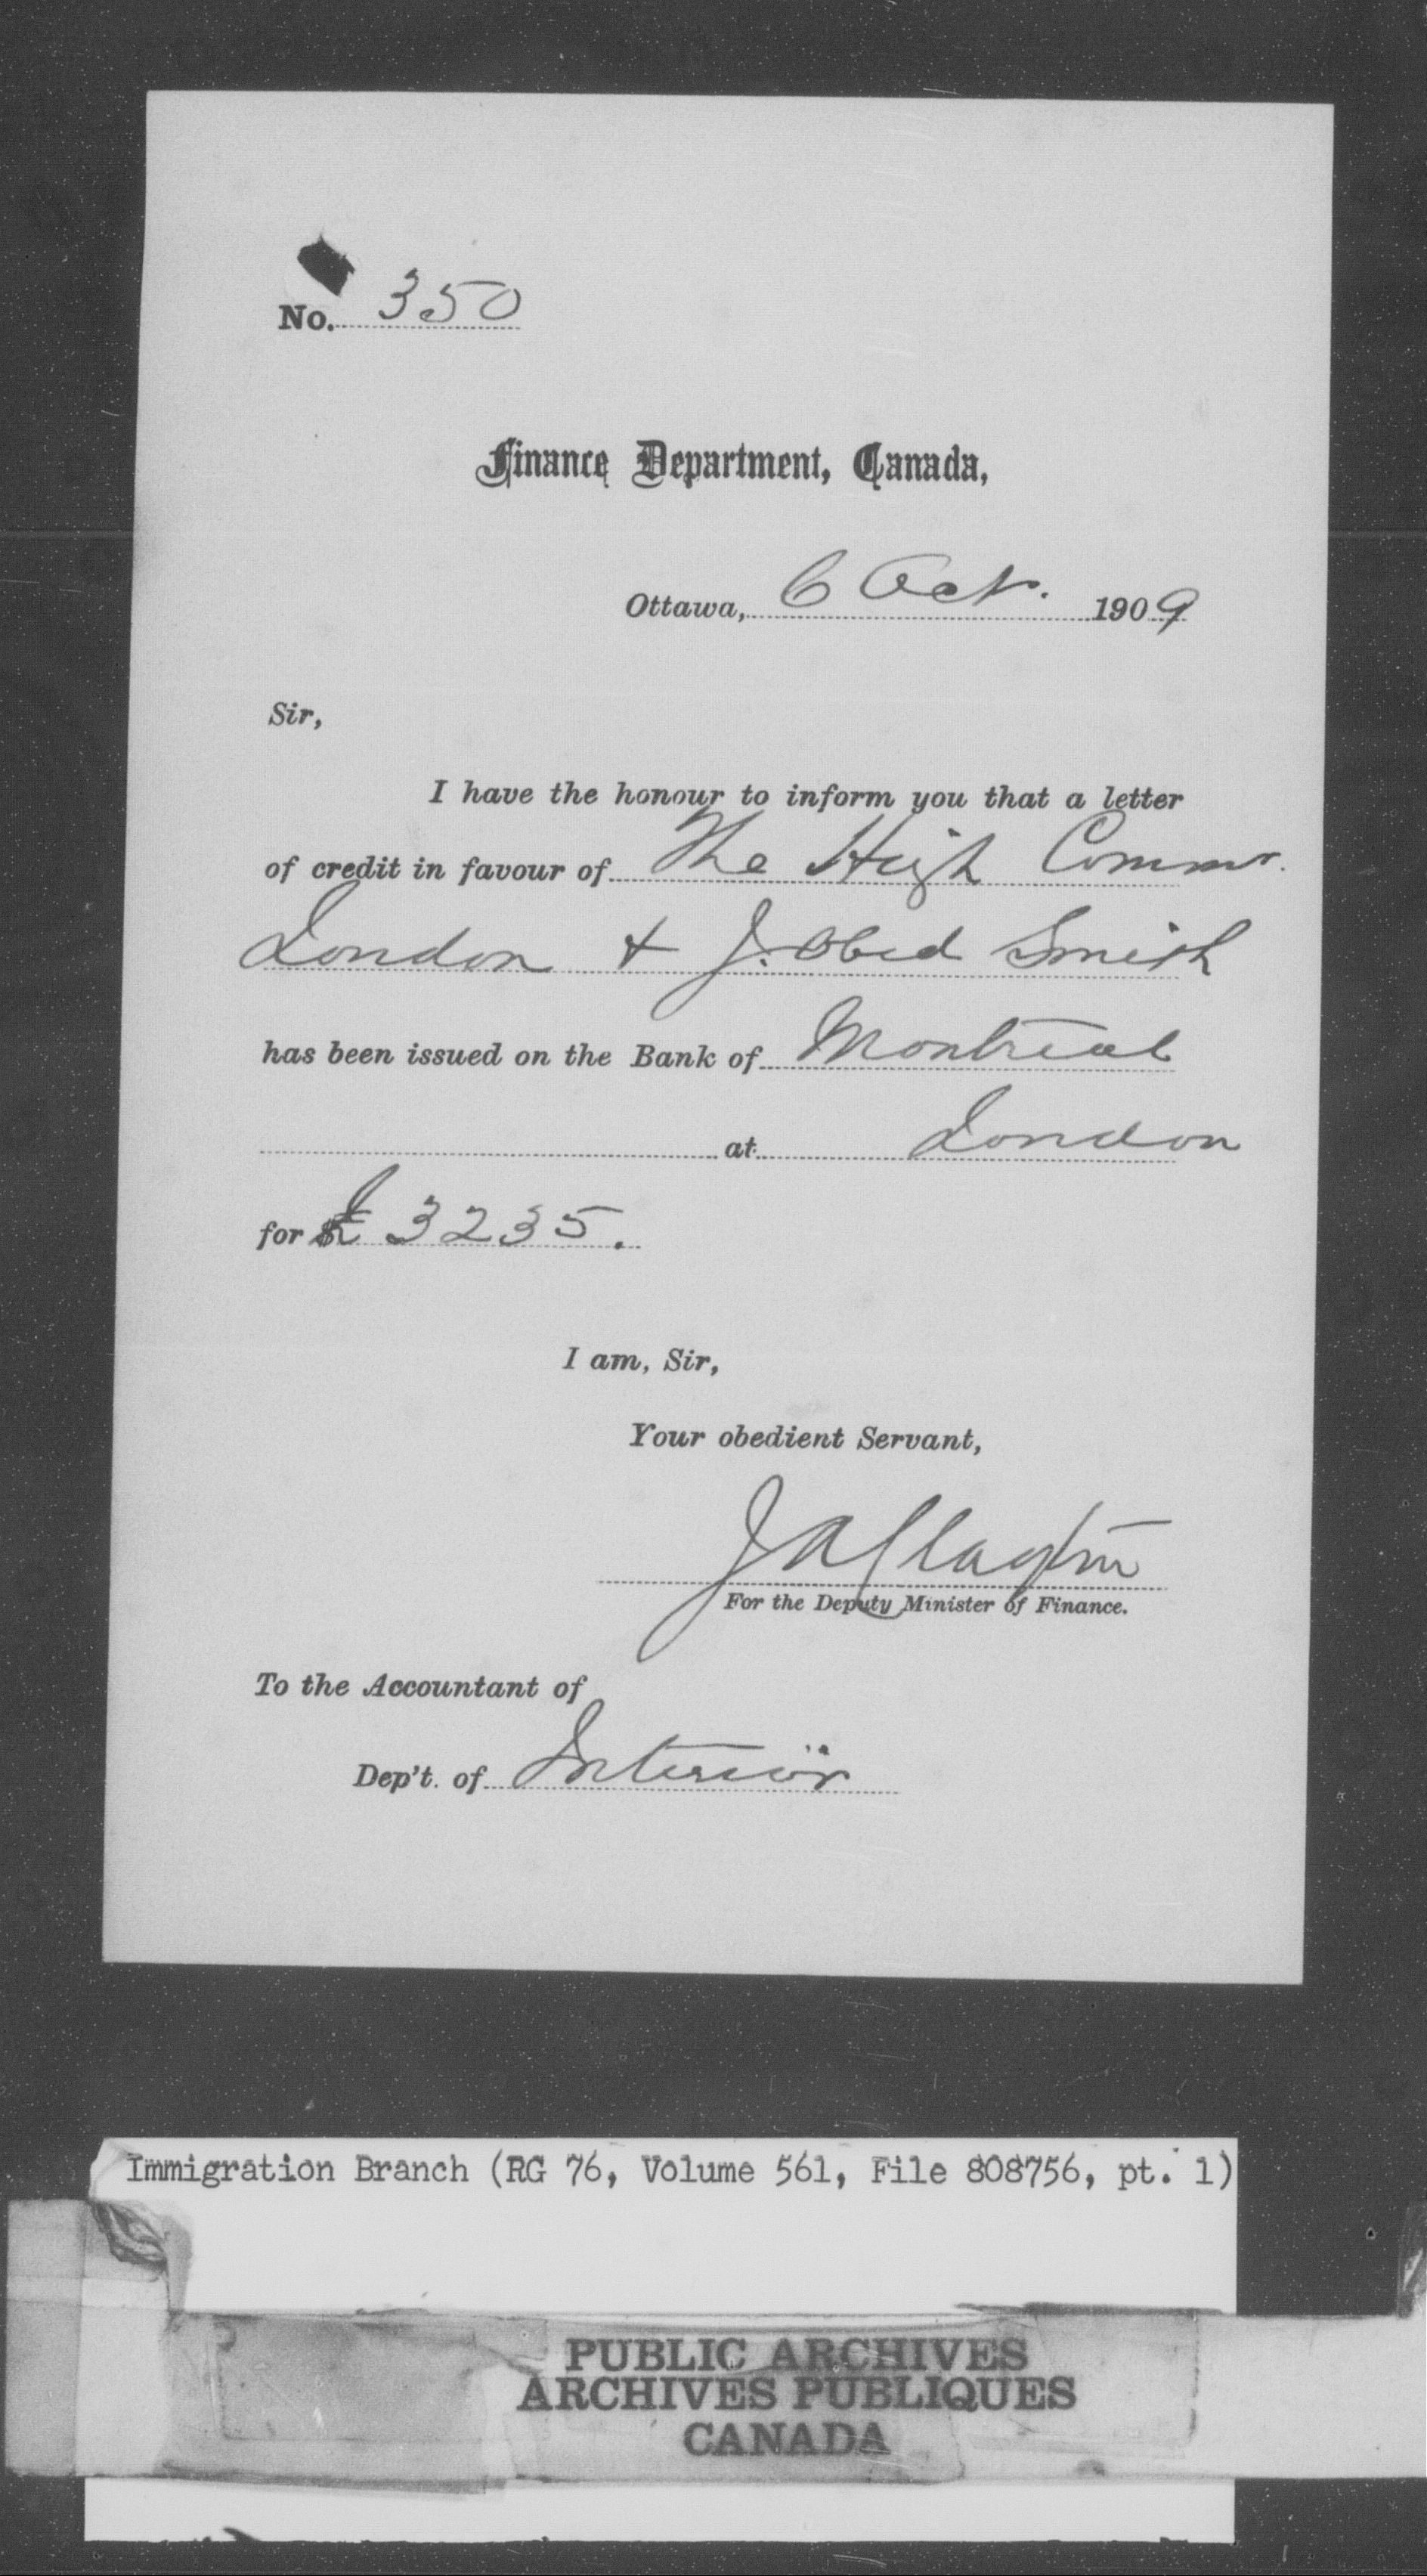 No. 350
Finance Department, Canada,
Ottawa, 6 Oct. 1909
Sir,
I have the honour to inform you that a letter
of credit in favour of The High Commr.
London & J. Obed Smith
has been issued on the Bank of Montreal
at London
for £ 3235.
I am, Sir,
Your obedient Servant,
For the Deputy Minister of Finance.
To the Accountant of
Dep't. of Interior
Immigration Branch (RG 76, Volume 561, File 808756, pt. 1)
PUBLIC ARCHIVES
ARCHIVES PUBLIQUES
CANADA